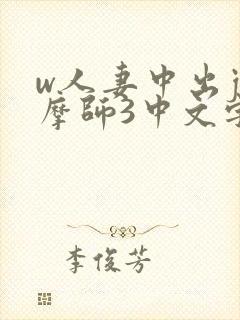 w人妻中出
摩師3中文字
李俊芳